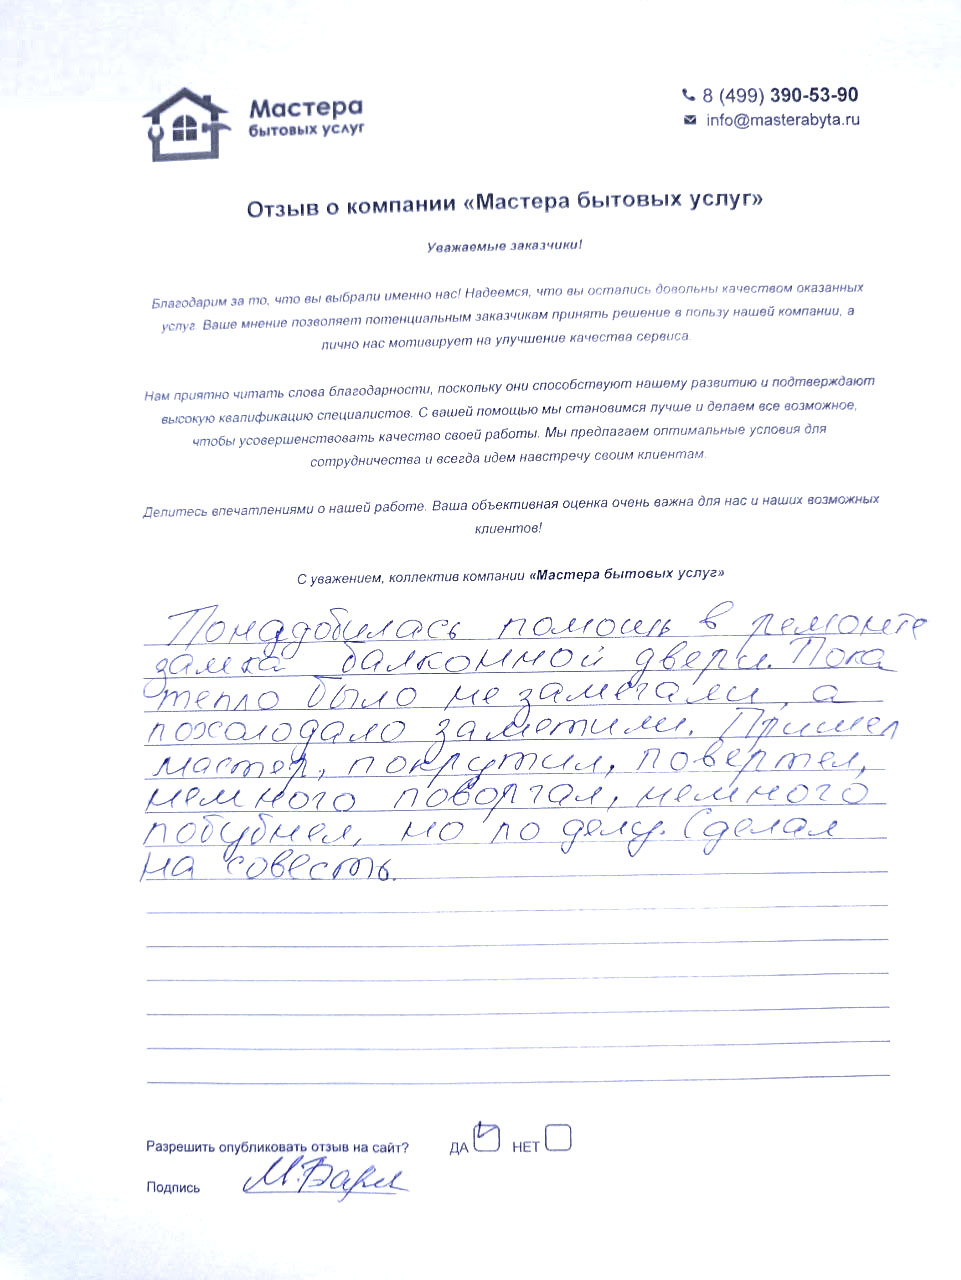 Мастера
бытовых услуг
8 (499) 390-53-90
info@masterabyta.ru
Отзыв о компании «Мастера бытовых услуг»
Уважаемые заказчики!
Благодарим за то, что вы выбрали именно нас! Надеемся, что вы остались довольны качеством оказанных
услуг. Ваше мнение позволяет потенциальным заказчикам принять решение в пользу нашей компании, а
лично нас мотивирует на улучшение качества сервиса.
Нам приятно читать слова благодарности, поскольку они способствуют нашему развитию и подтверждают
высокую квалификацию специалистов. С вашей помощью мы становимся лучше и делаем все возможное,
чтобы усовершенствовать качество своей работы. Мы предлагаем оптимальные условия для
сотрудничества и всегда идем навстречу своим клиентам.
Делитесь впечатлениями о нашей работе. Ваша объективная оценка очень важна для нас и наших возможных
клиентов!
С уважением, коллектив компании «Мастера бытовых услуг»
Понадобилась помощь в ремонте
замка балконной двери. Пока
тепло было не замечали, а
похолодало заметили. Пришел
мастер, покрутил, повертел,
немного поворчал, немного
побубнел, но по делу. Сделал
на совесть.
Разрешить опубликовать отзыв на сайт? ДА НЕТ
Подпись